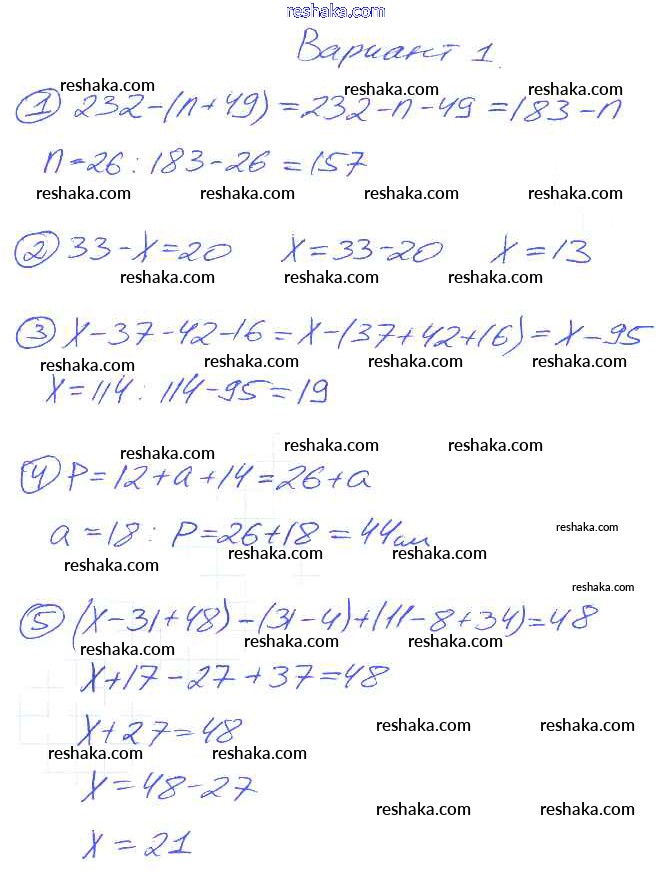 reshaka.com
Вариант 1.
reshaka.com reshaka.com reshaka.com
① 232-(n+49)=232-n-49=183-n
n=26: 183-26=157
reshaka.com reshaka.com reshaka.com reshaka.com
② 33-x=20 x=33-20 x=13
reshaka.com reshaka.com reshaka.com
③ x-37-42-16=x-(37+42+16)=x-95
reshaka.com reshaka.com reshaka.com reshaka.com
x=114: 114-95=19
reshaka.com reshaka.com reshaka.com
④ P=12+a+14=26+a
a=18: P=26+18=44см
reshaka.com
reshaka.com reshaka.com reshaka.com
reshaka.com
⑤ (x-31+48)-(31-4)+(11-8+34)=48
reshaka.com reshaka.com reshaka.com
x+17-27+37=48
x+27=48
reshaka.com reshaka.com
reshaka.com reshaka.com
x=48-27
reshaka.com reshaka.com
x=21